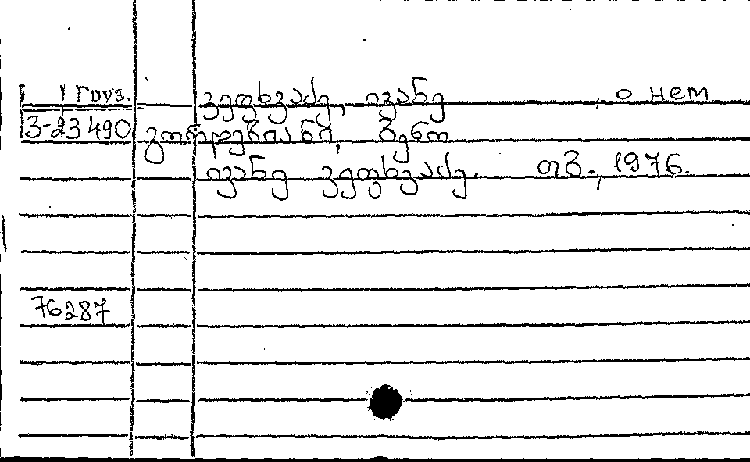 Груз. ვეფხვაძე, ივანე о нем
3-23490 გორდეზიანი, ბენო
ივანე ვეფხვაძე. თბ., 1976.
76287